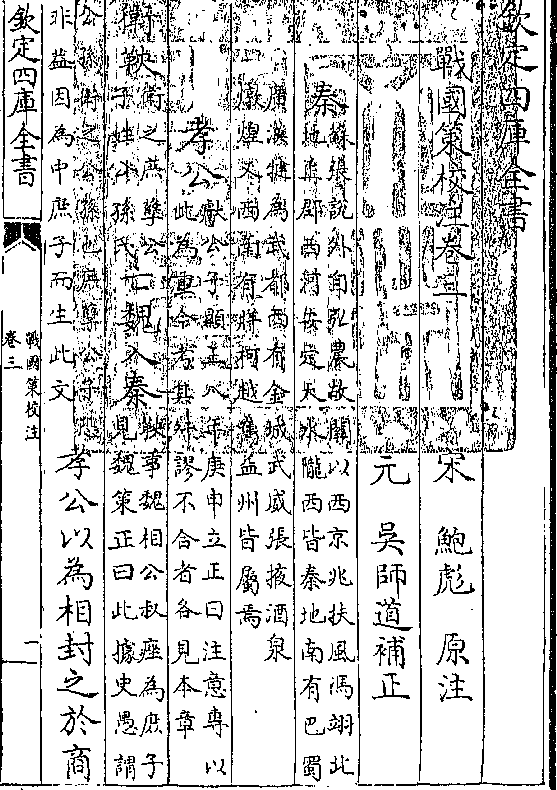 欽定四庫全書
戰國策校注卷三 宋 鮑彪 原注
元 吳師道補正
秦 蘇張說外自弘農故關以西京兆扶風馮翊北
地上郡西河安定天水隴西皆秦地南有巴蜀
廣漢犍為武都西有金城武威張掖酒泉
燉煌又西南有牂柯越嶲益州皆屬焉
孝公 獻公子顯王八年庚申立正曰注意專以
此為真今考其殊謬不合者各見本章
衛鞅 衛之庶孽公
子姓公孫氏 亡魏入秦 鞅事魏相公叔痤為庶子
見魏策正曰此據史愚謂
公孫鞅之公孫也庶孽公子恐
非益因為中庶子而生此文 孝公以為相封之於商
欽定四庫全書
戰國策校注
卷三
一